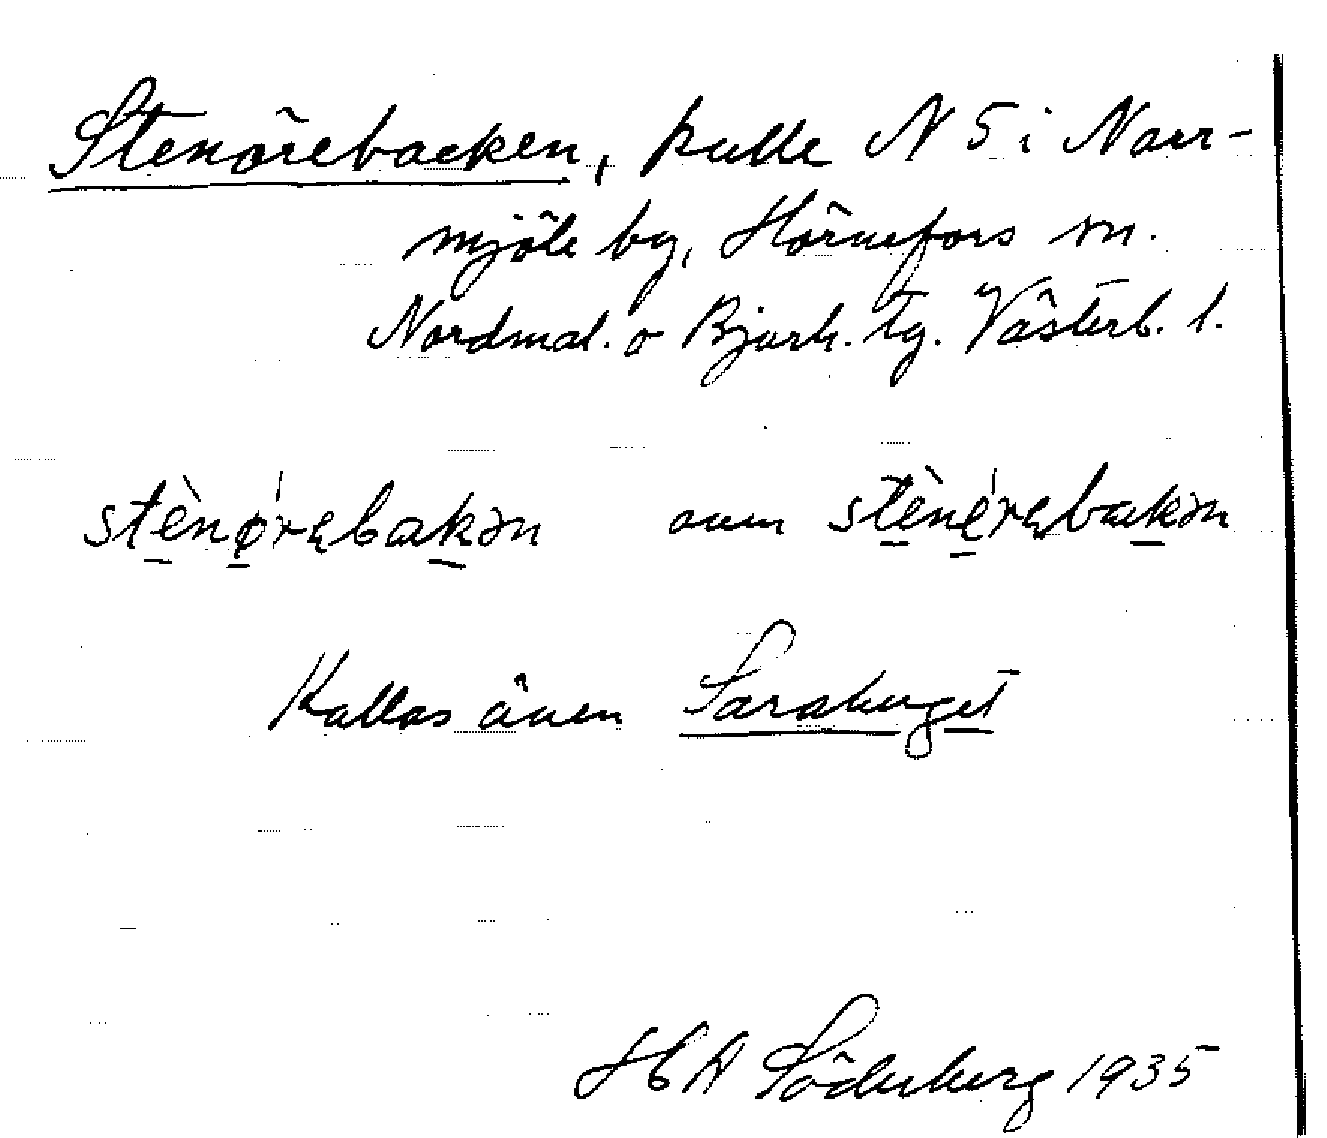 Stenörebacken, kulle N 5 i Norr-
mjöle by, Hörnefors sn.
Nordmal. o Bjurh. tg. Västerb. l.
stènø̀rebakən även stènérebakən
Kallas även Sarahuget
H A Söderberg 1935